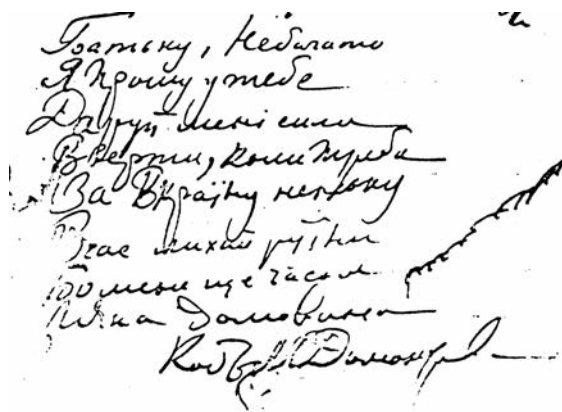 Батьку, Небагато
Я прошу у тебе
Даруй мені сили
Вмерти, коли треба
За Вкраїну неньку
В час лихий руїни
Бо мене ще часом
домовина
Кобзар